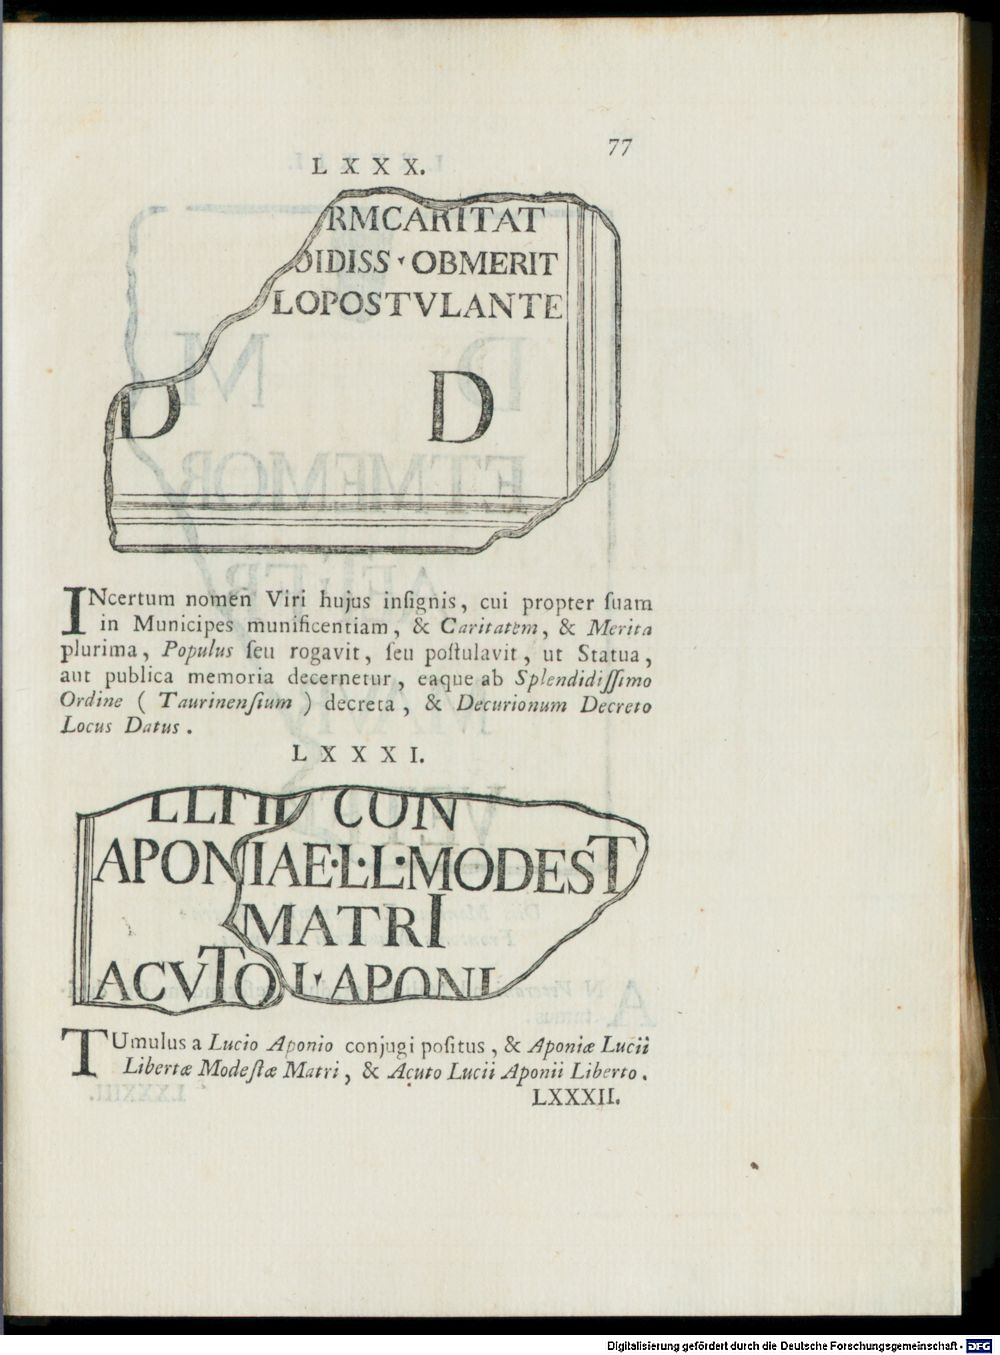 77
LXXX.
RMCARITAT
DIDISS · OBMERIT
LOPOSTVLANTE
D D
INcertum nomen Viri hujus insignis, cui propter suam
in Municipes munificentiam, & Caritatem, & Merita
plurima, Populus seu rogavit, seu postulavit, ut Statua,
aut publica memoria decernetur, eaque ab Splendidissimo
Ordine ( Taurinensium ) decreta, & Decurionum Decreto
Locus Datus.
LXXXI.
CON
APONIAE·L·L·MODEST
MATRI
ACVTO L·APONI
TUmulus a Lucio Aponio conjugi positus, & Aponiæ Lucii
Libertæ Modestæ Matri, & Acuto Lucii Aponii Liberto.
LXXXII.
Digitalisierung gefördert durch die Deutsche Forschungsgemeinschaft - DFG